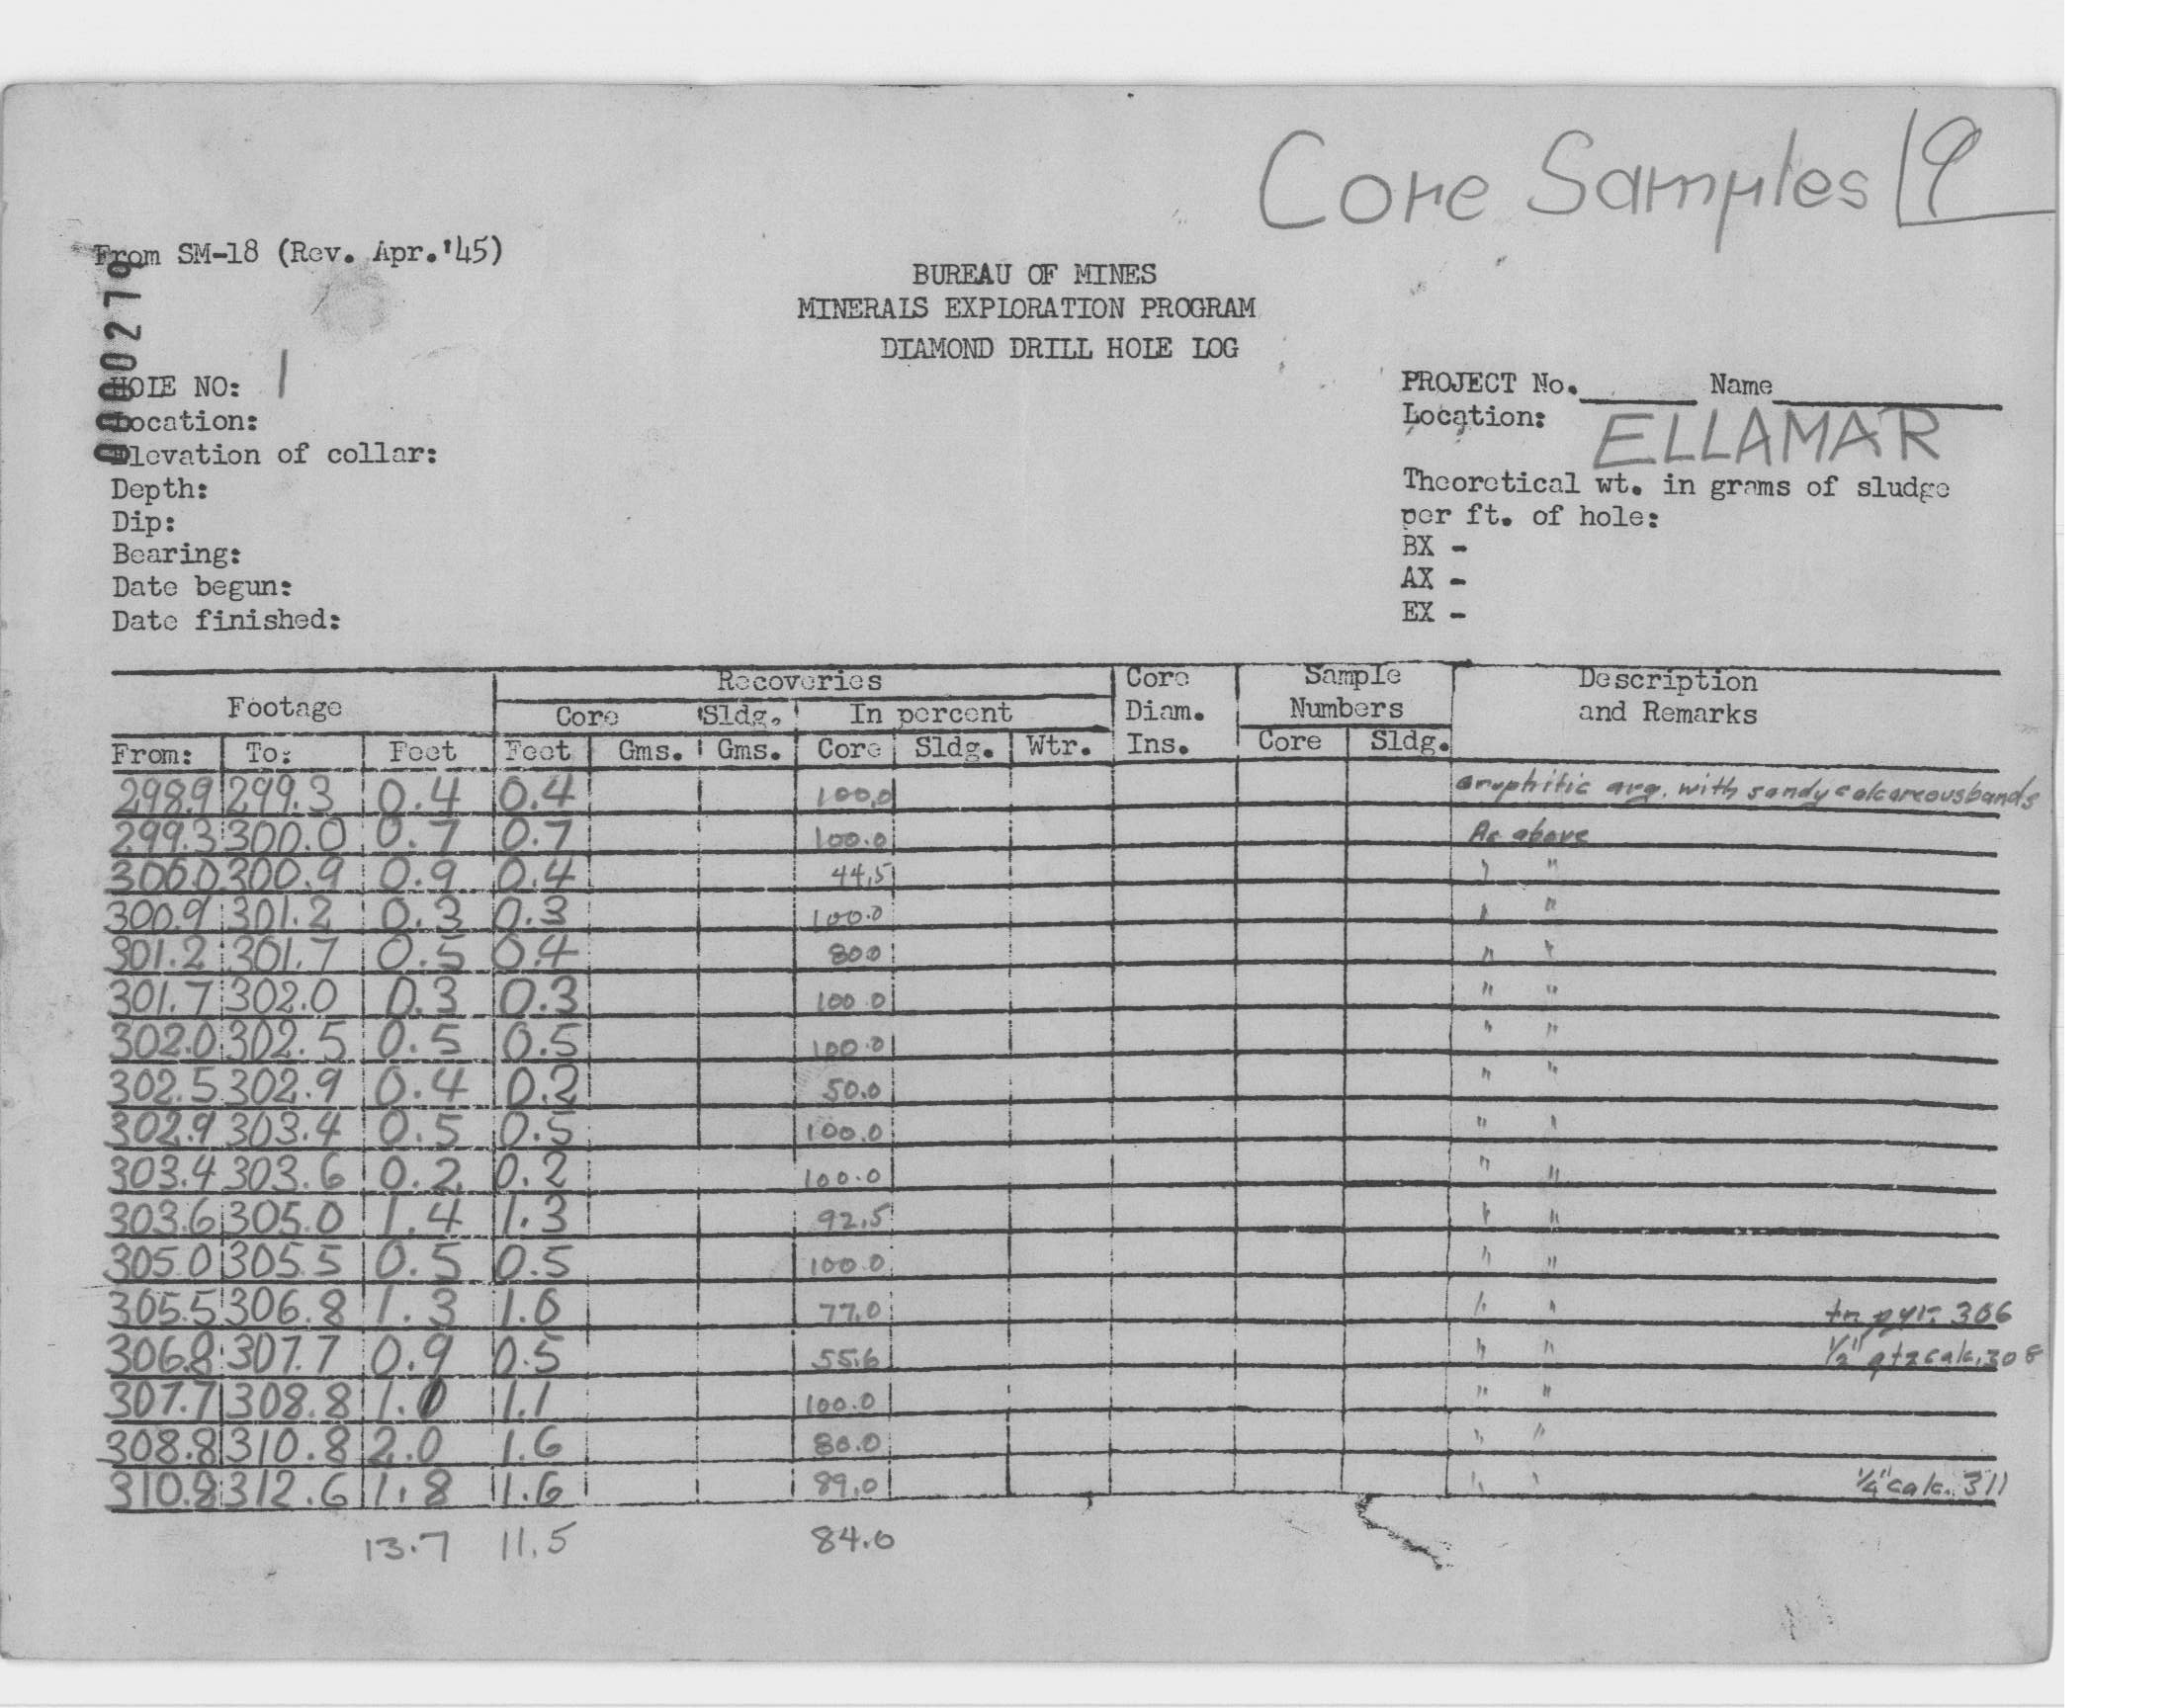 Core Samples 9
From SM-18 (Rev. Apr.'45)
0000279
BUREAU OF MINES
MINERALS EXPLORATION PROGRAM
DIAMOND DRILL HOLE LOG
HOLE NO: 1
PROJECT No. Name
Location:
Location: ELLAMAR
Elevation of collar:
Depth:
Theoretical wt. in grams of sludge
Dip:
per ft. of hole:
Bearing:
BX -
Date begun:
AX -
Date finished:
EX -
Footage Recoveries Core Diam. Ins. Sample Numbers Description and Remarks
Core Sldg. In percent
From: To: Feet Feet Gms. Gms. Core Sldg. Wtr. Core Sldg.
298.9 299.3 0.4 0.4 100.0 Graphitic arg. with sandy calcareous bands
299.3 300.0 0.7 0.7 100.0 As above
300.0 300.9 0.9 0.4 44.5 " "
300.9 301.2 0.3 0.3 100.0 " "
301.2 301.7 0.5 0.4 80.0 " "
301.7 302.0 0.3 0.3 100.0 " "
302.0 302.5 0.5 0.5 100.0 " "
302.5 302.9 0.4 0.2 50.0 " "
302.9 303.4 0.5 0.5 100.0 " "
303.4 303.6 0.2 0.2 100.0 " "
303.6 305.0 1.4 1.3 92.5 " "
305.0 305.5 0.5 0.5 100.0 " "
305.5 306.8 1.3 1.0 77.0 " " tr. pyr. 306
306.8 307.7 0.9 0.5 55.6 " " 1/2" qtz calc. 308
307.7 308.8 1.0 1.1 100.0 " "
308.8 310.8 2.0 1.6 80.0 " "
310.8 312.6 1.8 1.6 89.0 " " 1/4" calc. 311
13.7 11.5 84.0